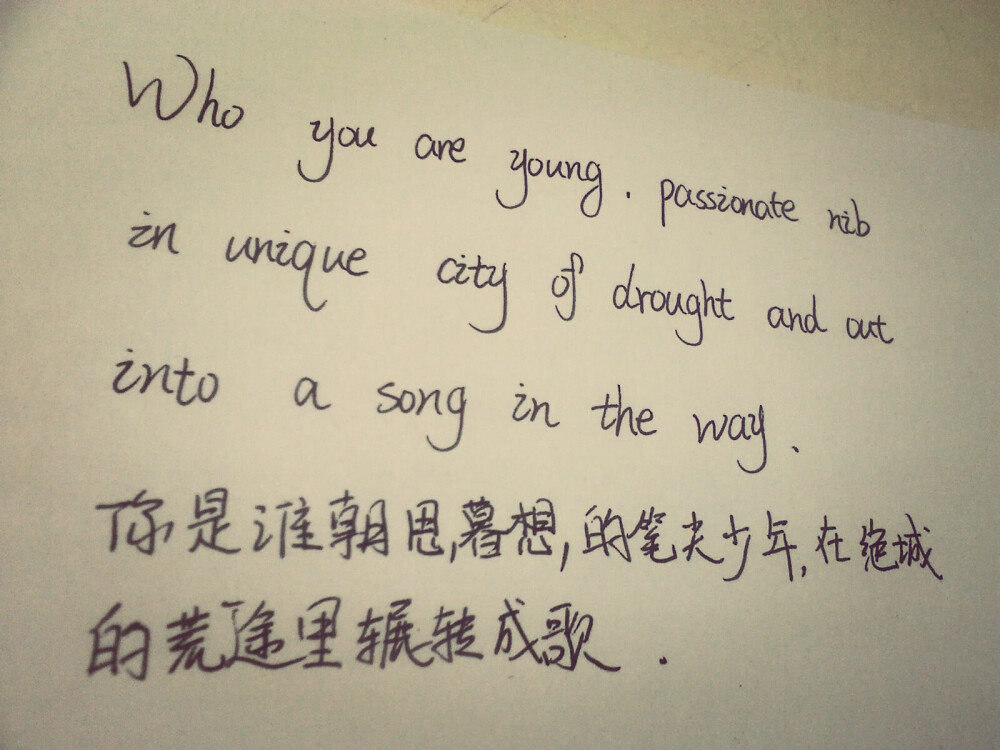 Who you are young. passionate nib
in unique city of drought and out
into a song in the way.
你是谁朝思,暮想,的笔尖少年,在绝城
的荒途里辗转成歌.